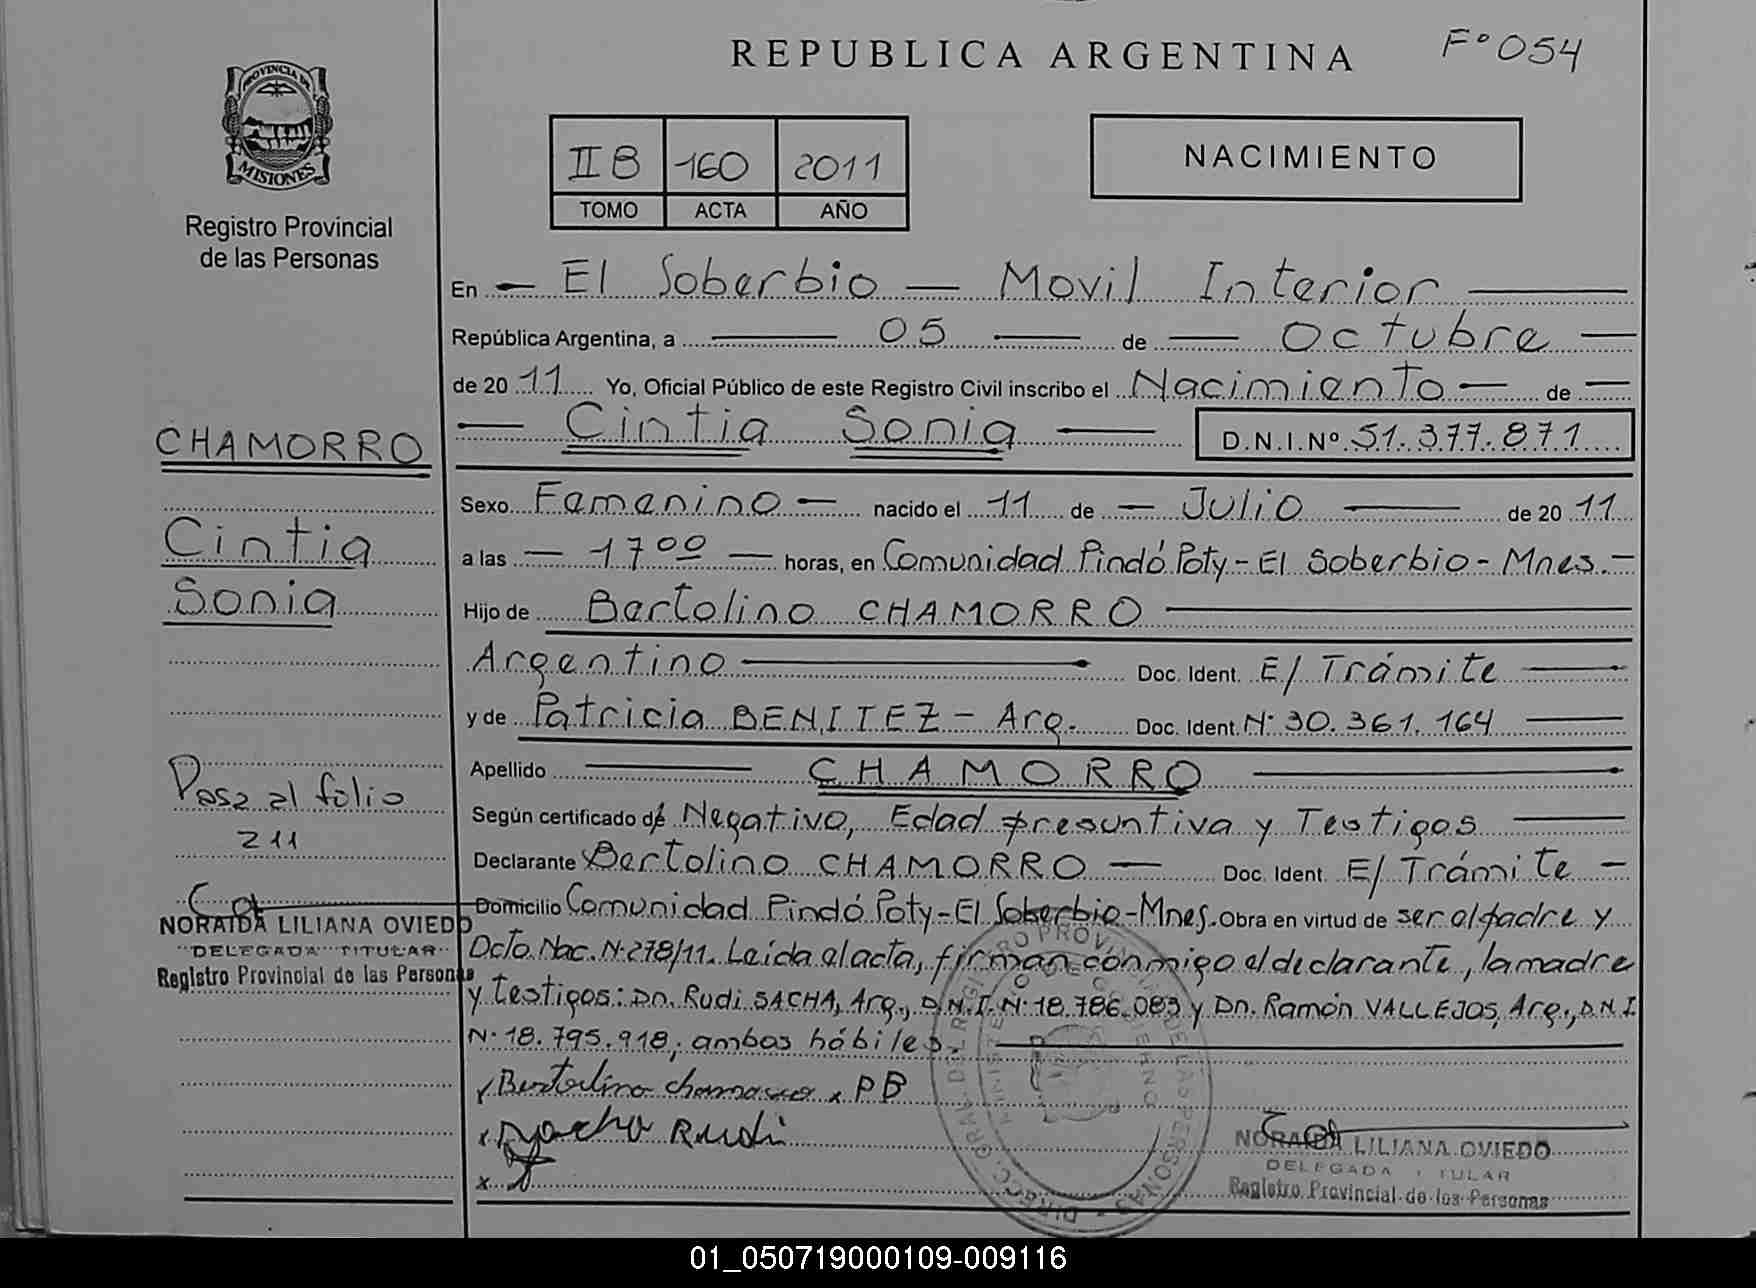 REPUBLICA ARGENTINA
Fº 054
PROVINCIA DE
MISIONES
Registro Provincial
de las Personas
II B 160 2011
TOMO ACTA AÑO
NACIMIENTO
En El Soberbio — Movil Interior
República Argentina, a 05 de Octubre
de 20 11 Yo, Oficial Público de este Registro Civil inscribo el Nacimiento de
Cintia Sonia D.N.I.Nº 51.377.871
Sexo Femenino nacido el 11 de Julio de 20 11
a las 17 00 horas, en Comunidad Pindó Poty - El Soberbio - Mnes.-
Hijo de Bertolino CHAMORRO
Argentino Doc. Ident. E/ Trámite
y de Patricia BENITEZ - Arg. Doc. Ident. Nº 30.361.164
Apellido CHAMORRO
Según certificado de Negativo, Edad presuntiva y Testigos
Declarante Bertolino CHAMORRO Doc. Ident. E/ Trámite
Domicilio Comunidad Pindó Poty - El Soberbio - Mnes. Obra en virtud de ser el padre y
Dcto. Nac. Nº 278/11. Leída el acta, firman conmigo el declarante, la madre
y testigos: Dn. Rudi SACHA, Arg., D.N.I. Nº 18.786.083 y Dn. Ramón VALLEJOS, Arg., D.N.I.
Nº 18.795.918, ambos hábiles.
x Bertolino chamorro x PB
x Rudi
x
NORAIDA LILIANA OVIEDO
DELEGADA TITULAR
Registro Provincial de las Personas
CHAMORRO
Cintia
Sonia
Pasa al folio
211
NORAIDA LILIANA OVIEDO
DELEGADA TITULAR
Registro Provincial de las Personas
01_050719000109-009116